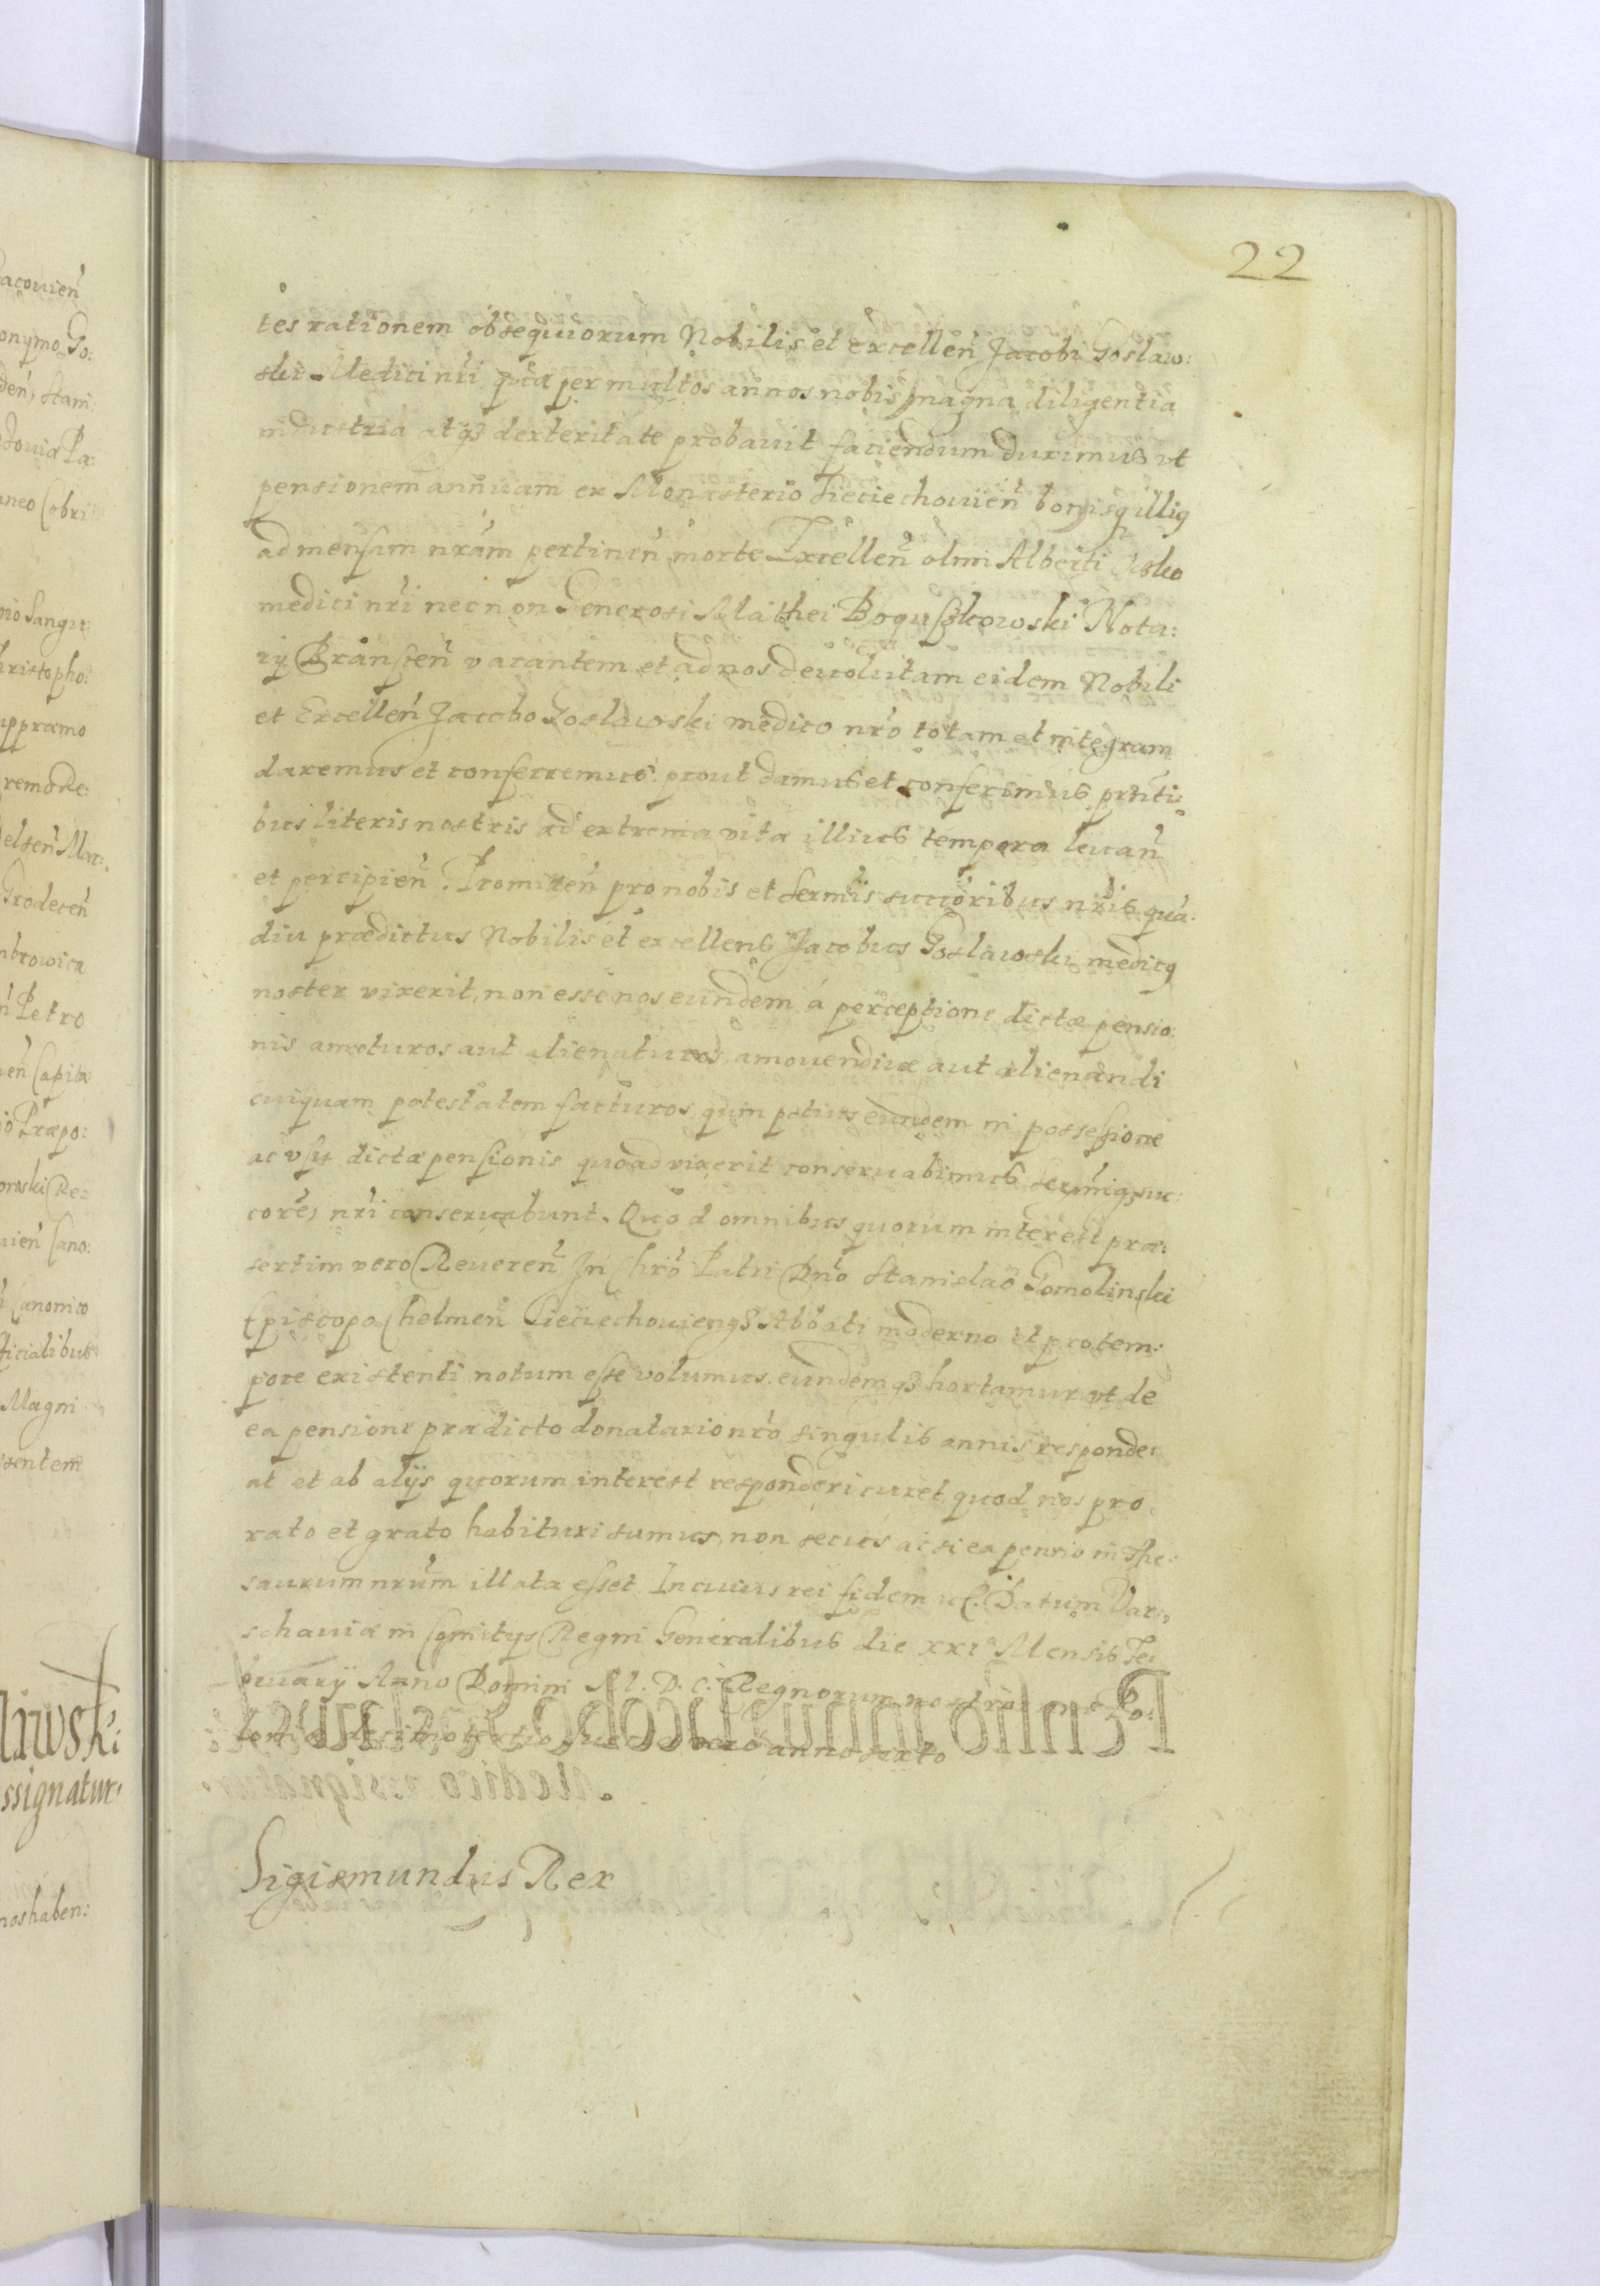 22
tes rationem obsequiorum Nobilis et excellen̄ Jacobi Goslaw:
ski Medici nr̄i quæ per multos annos nobis magna diligentia
industria atq3 dexteritate probauit faciendum duximus vt
pensionem annuam ex Monasterio Sieciechouien̄ bonisq illiq
ad mensam nr̄am pertinen̄ morte Excellen̄ olim Alberti
medici nr̄i necnon Generosi Mathei Boguszkowski Nota:
rij Branscen̄ vacantem et ad nos deuolutam eidem Nobili
et Excellen̄ Jacobo Goslawski medico nr̄o totam et integram
daremus et conferremus prout damus et conferimus pn̄ti:
bus literis nostris ad extrema vitæ illius tempora leuan̄
et percipien̄. Promitten̄ pro nobis et Sermis succōribus nr̄is quá:
diu prædictus Nobilis et excellens Jacobus Goslawski medicq
noster vixerit, non esse nos eundem á perceptione dictæ pensio:
nis amoturos aut alienaturos, amouendiue aut alienandi
cuiquam potestatem facturos quin potius eundem in possessione
ac vsu dictæ pensionis quoad vixerit conseruabimus Sermiq3 suc:
cores nr̄i conseruabunt. Quod omnibus quorum interest præ:
sertim vero Reueren̄ In Chro Patri Dn̄o Stanislao Gomolinski
Episcopo Chelmen̄ Sieciechouienq3 Abbati moderno et pro tem:
pore existenti notum esse volumus. eundemq3 hortamur vt de
ea pensione prædicto donatario nr̄o singulis annis responde:
at et ab alijs quorum interest responderi curet quod nos pro
rato et grato habituri sumus, non secus ac si ea pensio in The:
saurum nr̄um illata esset. In cuius rei fidem Datum Var:
schauiæ in Comitijs Regni Generalibus die XXI Mensis Fe:
bruarij Anno Domini M. D. C. Regnorum nostrorum Po:
loniæ decimo tertio Sueciæ vero anno sexto
Sigismundus Rex
acouien̄
onymo Go:
den̄, Stani:
neo Cobri
io Sangu:
hristopho:
uppræmo
remo Re:
elsen̄ Mar:
Grodecen̄
mbrowica
n̄ Petro
en̄ Capita
o Præpo:
orski Re:
uien̄ Cano:
Canonico
ficialibus
Magni
sentem
liwski
ssignatur
nos haben: